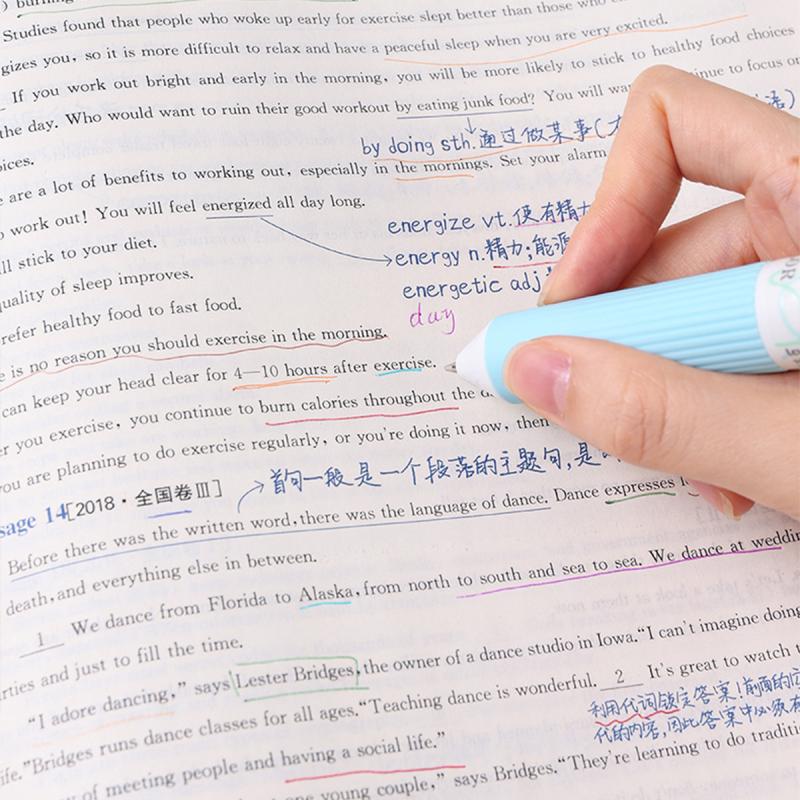 ) burning
Studies found that people who woke up early for exercise slept better than those who
gizes you, so it is more difficult to relax and have a peaceful sleep when you are very excited.
If you work out bright and early in the morning, you will be more likely to stick to healthy food choices
the day. Who would want to ruin their good workout by eating junk food? You will wa nue to focus on
oices.
by doing sth.通过做某事(
e are a lot of benefits to working out, especially in the mornings. Set your alarm
o work out! You will feel energized all day long.
energize vt.使有精力
ll stick to your diet.
energy n.精力;能源
uality of sleep improves.
energetic adj
refer healthy food to fast food.
day
e is no reason you should exercise in the morning.
can keep your head clear for 4—10 hours after exercise.
er you exercise, you continue to burn calories throughout the d
you are planning to do exercise regularly, or you're doing it now, then
首句一般是一个段落的主题句,是
sage 14[2018·全国卷Ⅲ]
Before there was the written word,there was the language of dance. Dance expresses l
death,and everything else in between.
1 We dance from Florida to Alaska,from north to south and sea to sea. We dance at weddin
rties and just to fill the time.
"I adore dancing," says Lester Bridges,the owner of a dance studio in Iowa."I can't imagine doing
ife."Bridges runs dance classes for all ages."Teaching dance is wonderful. 2 It's great to watch t
利用代词锁定答案!前面的
代的内容,因此答案中必须有
" of meeting people and having a social life."
one young couple," says Bridges."They're learning to do traditi